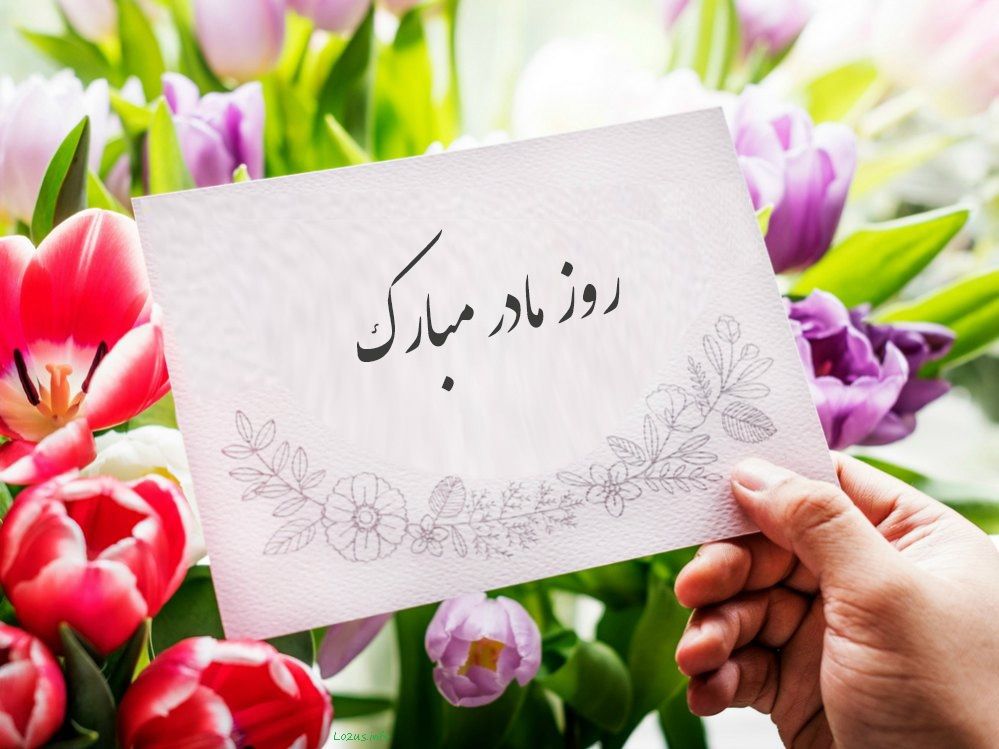 روز مادر مبارک
Lo2us.info